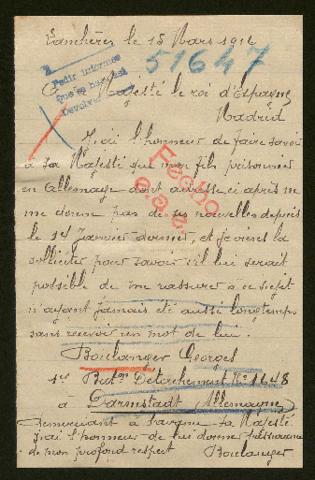 le 15 Mars 1916
51647
Pedir informes
que se hace
devolver
Majesté le roi d'espagne
Madrid
J'ai l'honneur de faire savoir
à sa Majesté que mon fils prisonnier
en Allemagne dont adresse ci après ne
me donne pas de ses nouvelles depuis
le 1er Janvier dernier, et je viens la
solliciter pour savoir s'il lui serait
possible de me rassurer à ce sujet
n'ayant jamais été aussi longtemps
sans recevoir un mot de lui.
Fecho
Boulanger Georges
1er Baton Détachement No 1648
à Darmstadt Allemagne
Remerciant à l'avance sa Majesté
j'ai l'honneur de lui donner l'assurance
de mon profond respect Boulanger